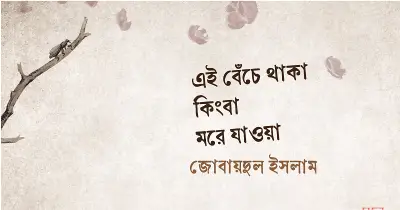 এই বেঁচে থাকা
কিংবা
মরে যাওয়া
জোবায়দুল ইসলাম